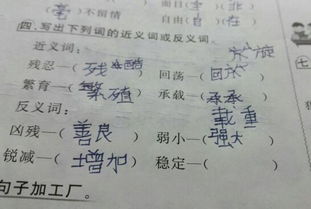 (毫)不留情 面目(全)非
自由(自)在
四、写出下列词的近义词或反义词。
近义词：
残忍—(残酷 回荡—(回旋
繁育—(繁殖 承载—(承载重
反义词：
凶残—(善良 弱小—(强大
锐减—(增加 稳定—(
句子加工厂。
七